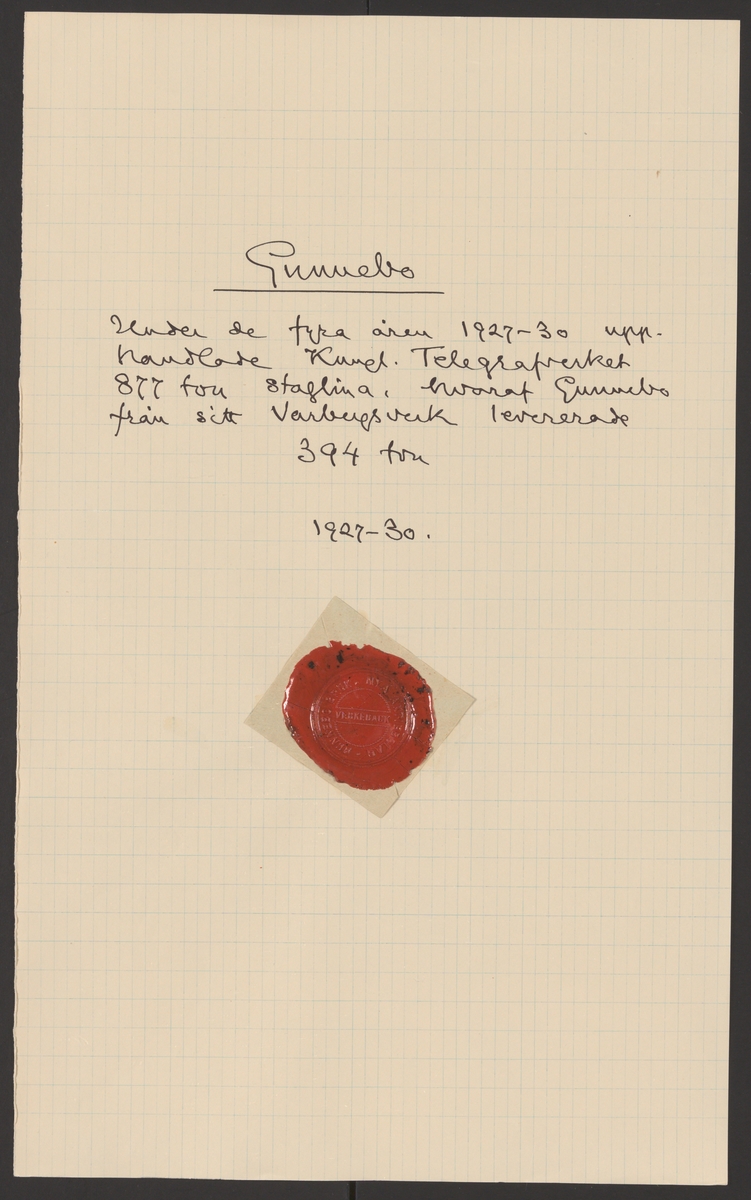 Gunnebo
Under de fyra åren 1927–30 upp-
handlade Kungl. Telegrafverket
877 ton staglina, hvoraf Gunnebo
från sitt Varbergsverk levererade
394 ton
1927–30.
VERKEBACK